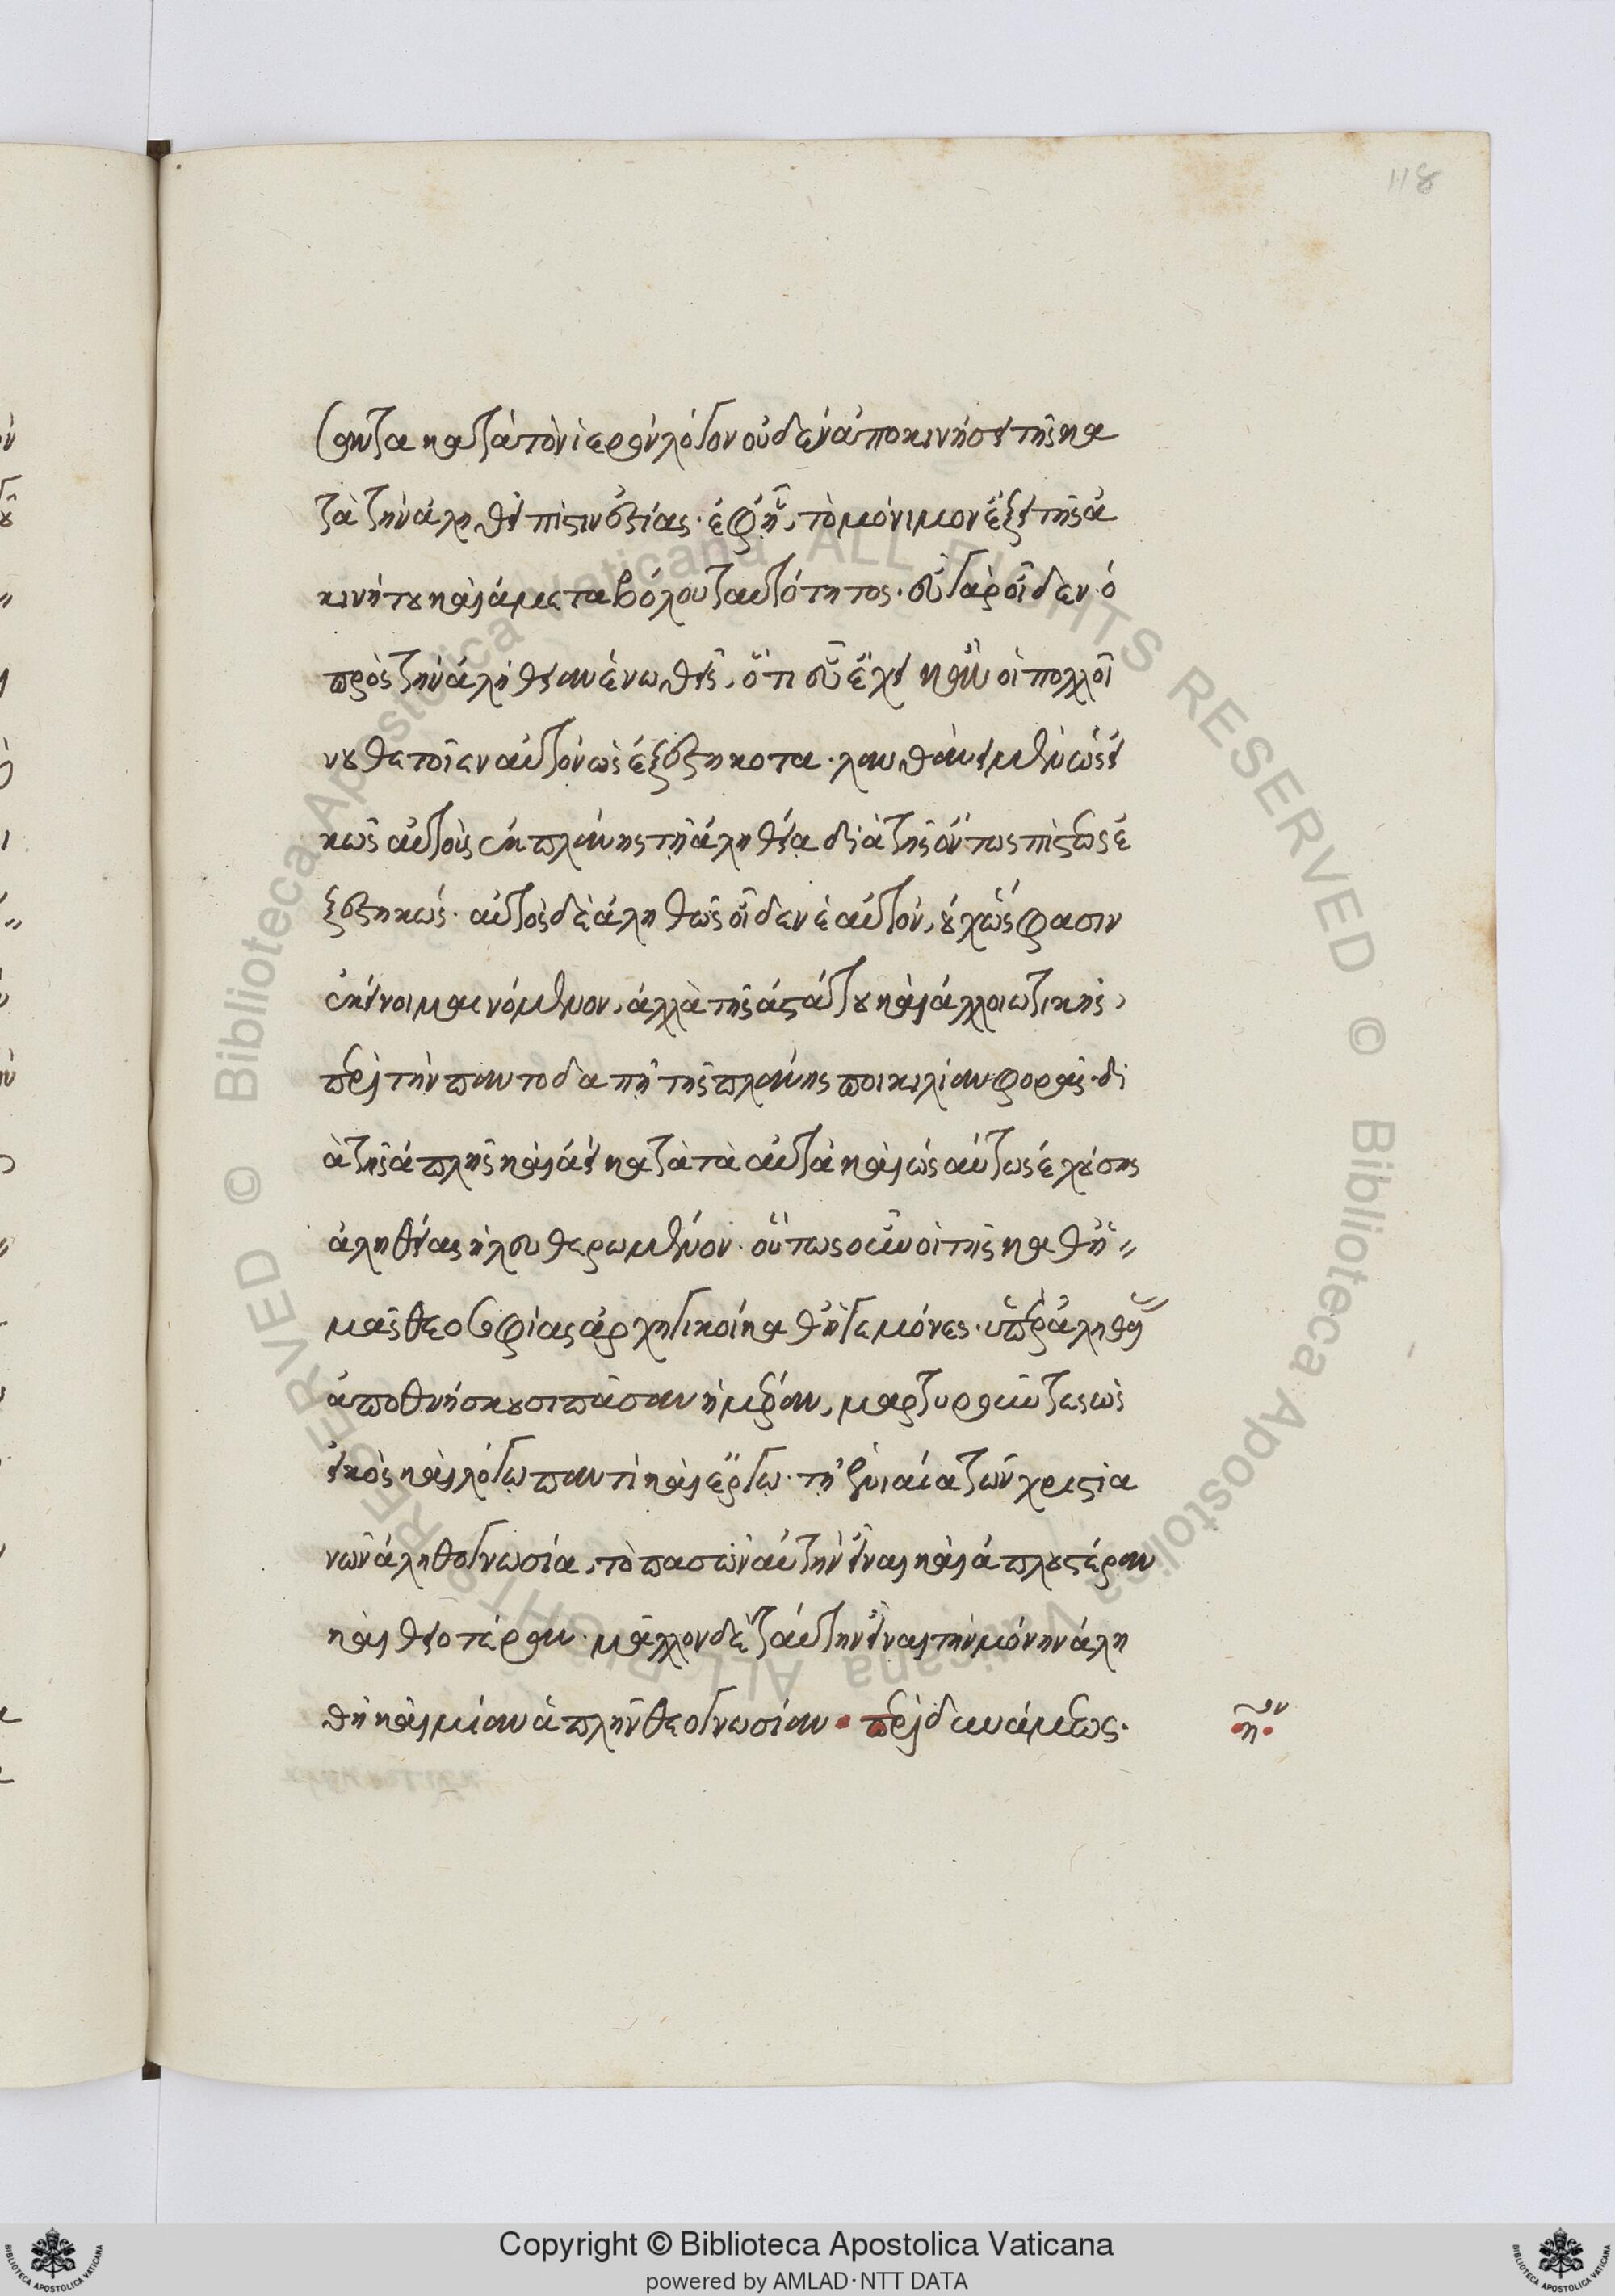 118
σαντα κατὰ τὸν ἱερὸν λόγον οὐδὲν ἀποκινήσει τῆς κα
τὰ τὴν ἀληθῆ πίστιν ἑστίας· ἐφ' ᾗ, τὸ μόνιμον ἕξει τῆς ἀ
κινήτου καὶ ἀμεταβόλου ταυτότητος· εὖ γὰρ οἶδεν ὁ
πρὸς τὴν ἀλήθειαν ἑνωθεὶς, ὅτι εὖ ἔχει κἂν οἱ πολλοὶ
νουθετοῖεν αὐτὸν ὡς ἐξεστηκότα· λανθάνει μὲν ὡς εἰ
κὸς αὐτοὺς ἐκ πλάνης τῇ ἀληθείᾳ διὰ τῆς ὄντως πίστεως ἐ
ξεστηκώς· αὐτὸς δὲ ἀληθῶς οἶδεν ἑαυτὸν, οὐχ ὥς φασιν
ἐκεῖνοι μαινόμενον, ἀλλὰ τῆς ἀστάτου καὶ ἀλλοιωτικῆς,
περὶ τὴν παντοδαπῆ τῆς πλάνης ποικιλίαν φορᾶς· δι
ὰ τῆς ἁπλῆς καὶ ἀεὶ κατὰ τὰ αὐτὰ καὶ ὡσαύτως ἐχούσης
ἀληθείας ἠλευθερωμένον· οὕτως οὖν οἱ τῆς καθ' ἡ
μᾶς θεοσοφίας ἀρχηγικοὶ καθηγεμόνες· ὑπὲρ ἀληθείας
ἀποθνήσκουσι πᾶσαν ἡμέραν, μαρτυροῦντες ὡς
εἰκὸς καὶ λόγῳ παντὶ καὶ ἔργῳ· τῇ ἑνιαίᾳ τῶν χριστια
νῶν ἀληθογνωσίᾳ, τὸ πασῶν αὐτὴν εἶναι καὶ ἁπλουστέραν
καὶ θειοτέραν· μᾶλλον δὲ τὸ αὐτὴν εἶναι τὴν μόνην ἀλη
θῆ καὶ μίαν ἁπλῆν θεογνωσίαν· περὶ δυνάμεως·
η